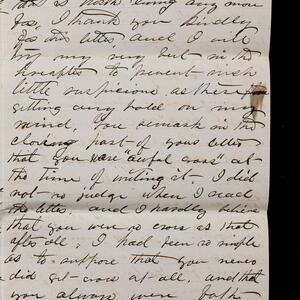 any more
Jas, I thank you kindly
for this letter and I will
try my very best in the
hereafter to prevent such
little suspicions as these from
getting any hold on my
mind. You remark in the
closing part of your letter
that you were "awful cross" at
the time of writing it. I did
not so judge when I read
the letter, and I hardly believe
that you were so cross as that
after all. I had been so simple
as to suppose that you never
did get cross at all, and that
you always were